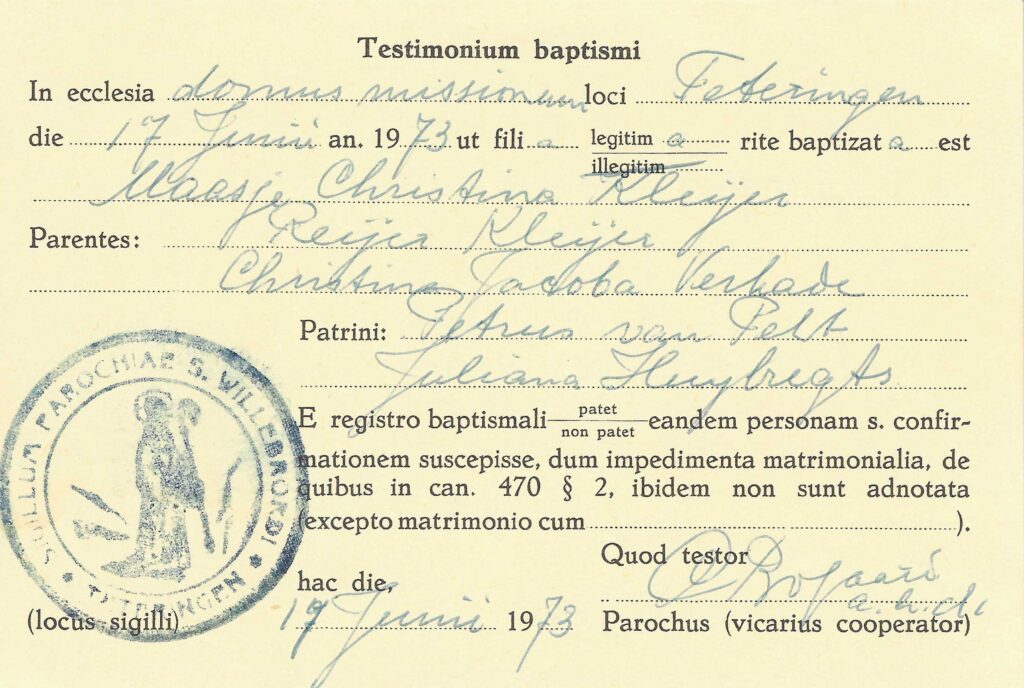 Testimonium baptismi
In ecclesia domus missionum loci Teteringen
die 17 Junii an. 1973 ut filia legitima rite baptizata est
illegitim
Maasje Christina Kleijer
Parentes: Reijer Kleijer
Christina Jacoba Verhade
Patrini: Petrus van Pelt
Juliana Huybregts
E registro baptismali patet eandem personam s. confir-
non patet
mationem suscepisse, dum impedimenta matrimonialia, de
quibus in can. 470 § 2, ibidem non sunt adnotata
(excepto matrimonio cum ).
Quod testor
hac die,
(locus sigilli) 17 Junii 1973 Parochus (vicarius cooperator)
SIGILLUM PAROCHIAE S. WILLEBRORDI
TETERINGEN